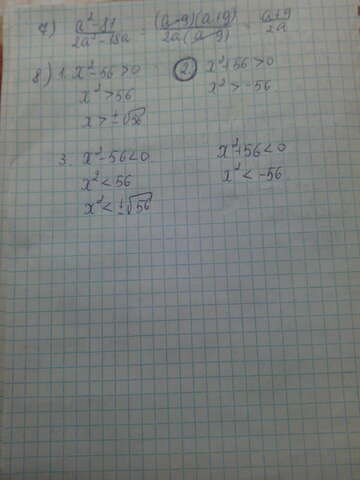 7) (a² - 81)/(2a² - 18a) = ((a-9)(a+9))/(2a(a-9)) = (a+9)/(2a)
8) 1. x² - 56 > 0
x² > 56
x > ±√56
2. x² + 56 > 0
x² > -56
3. x² - 56 < 0
x² < 56
x² < ±√56
x² + 56 < 0
x² < -56